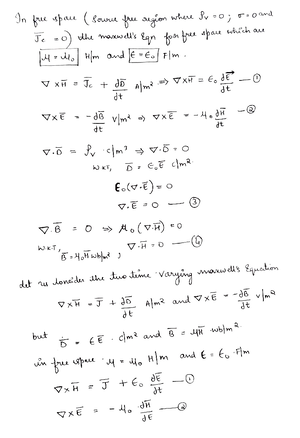 In free space ( Source free region where ρv = 0 ; σ = 0 and
J̅c = 0 ) the maxwell's Eqn for free space which are
μ = μ0 H/m and ε = ε0 F/m.
∇ × H̅ = J̅c + dD̅/dt A/m² ⇒ ∇ × H̅ = ε0 dE̅/dt — ①
∇ × E̅ = -dB̅/dt V/m² ⇒ ∇ × E̅ = -μ0 dH̅/dt — ②
∇ · D̅ = ρv · C/m³ ⇒ ∇ · D̅ = 0
WKT, D̅ = ε0 E̅ C/m².
ε0 (∇ · E̅) = 0
∇ · E̅ = 0 — ③
∇ · B̅ = 0 ⇒ μ0 (∇ · H̅) = 0
WKT, B̅ = μ0 H̅ wb/m² ; ∇ · H̅ = 0 — ④
let us consider the two time varying maxwell's Equation
∇ × H̅ = J̅ + dD̅/dt A/m² and ∇ × E̅ = -dB̅/dt V/m²
but D̅ = εE̅ · C/m² and B̅ = μH̅ wb/m².
in free space μ = μ0 H/m and ε = ε0 · F/m
∇ × H̅ = J̅ + ε0 dE̅/dt — ①
∇ × E̅ = -μ0 · dH̅/dE — ②